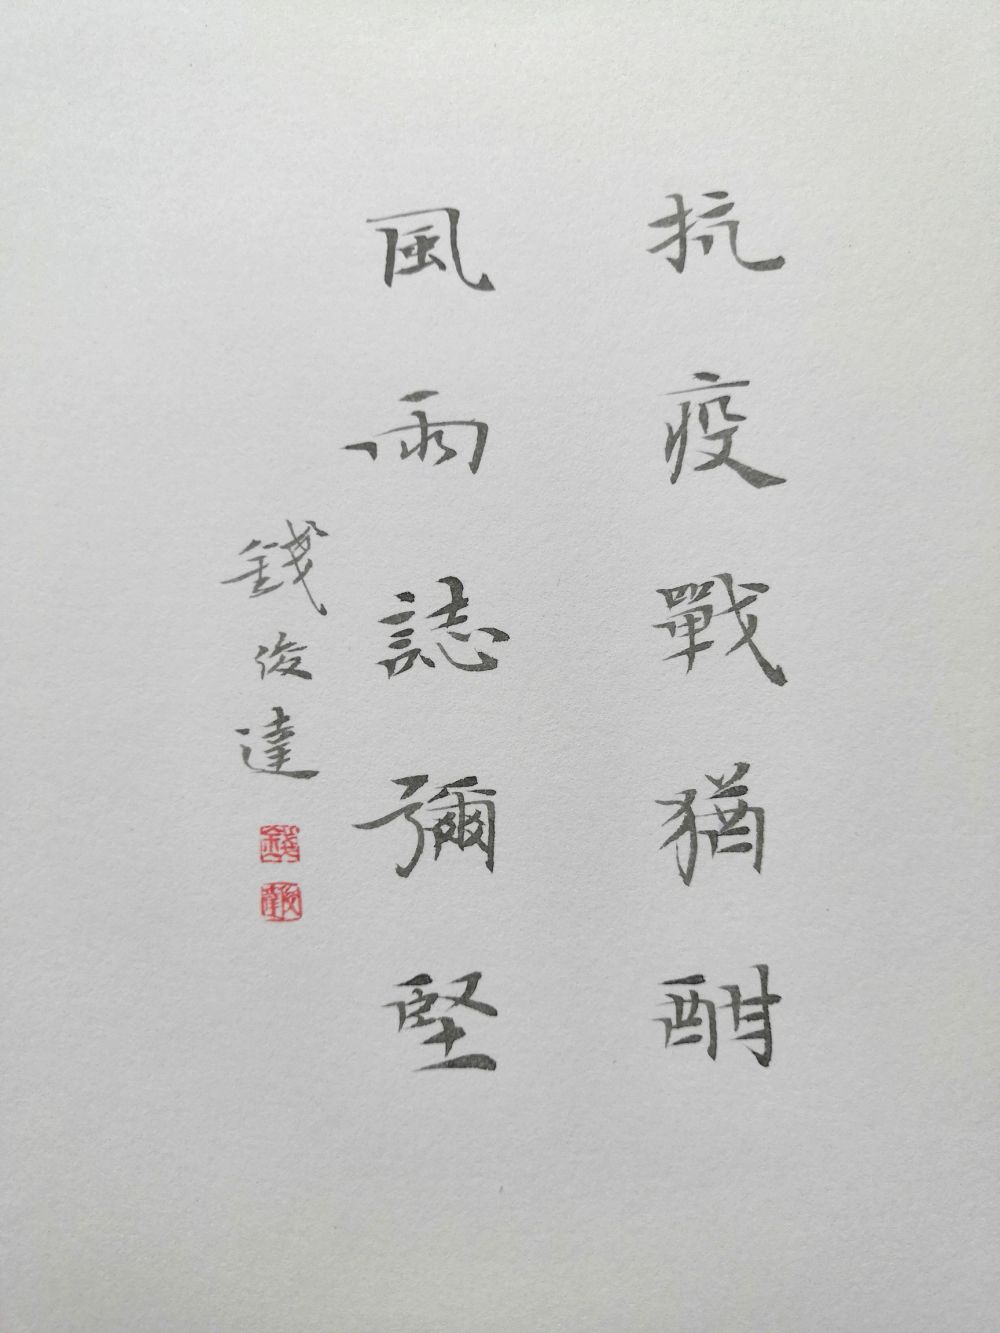 抗疫戰猶酣
風雨誌彌堅
錢俊達